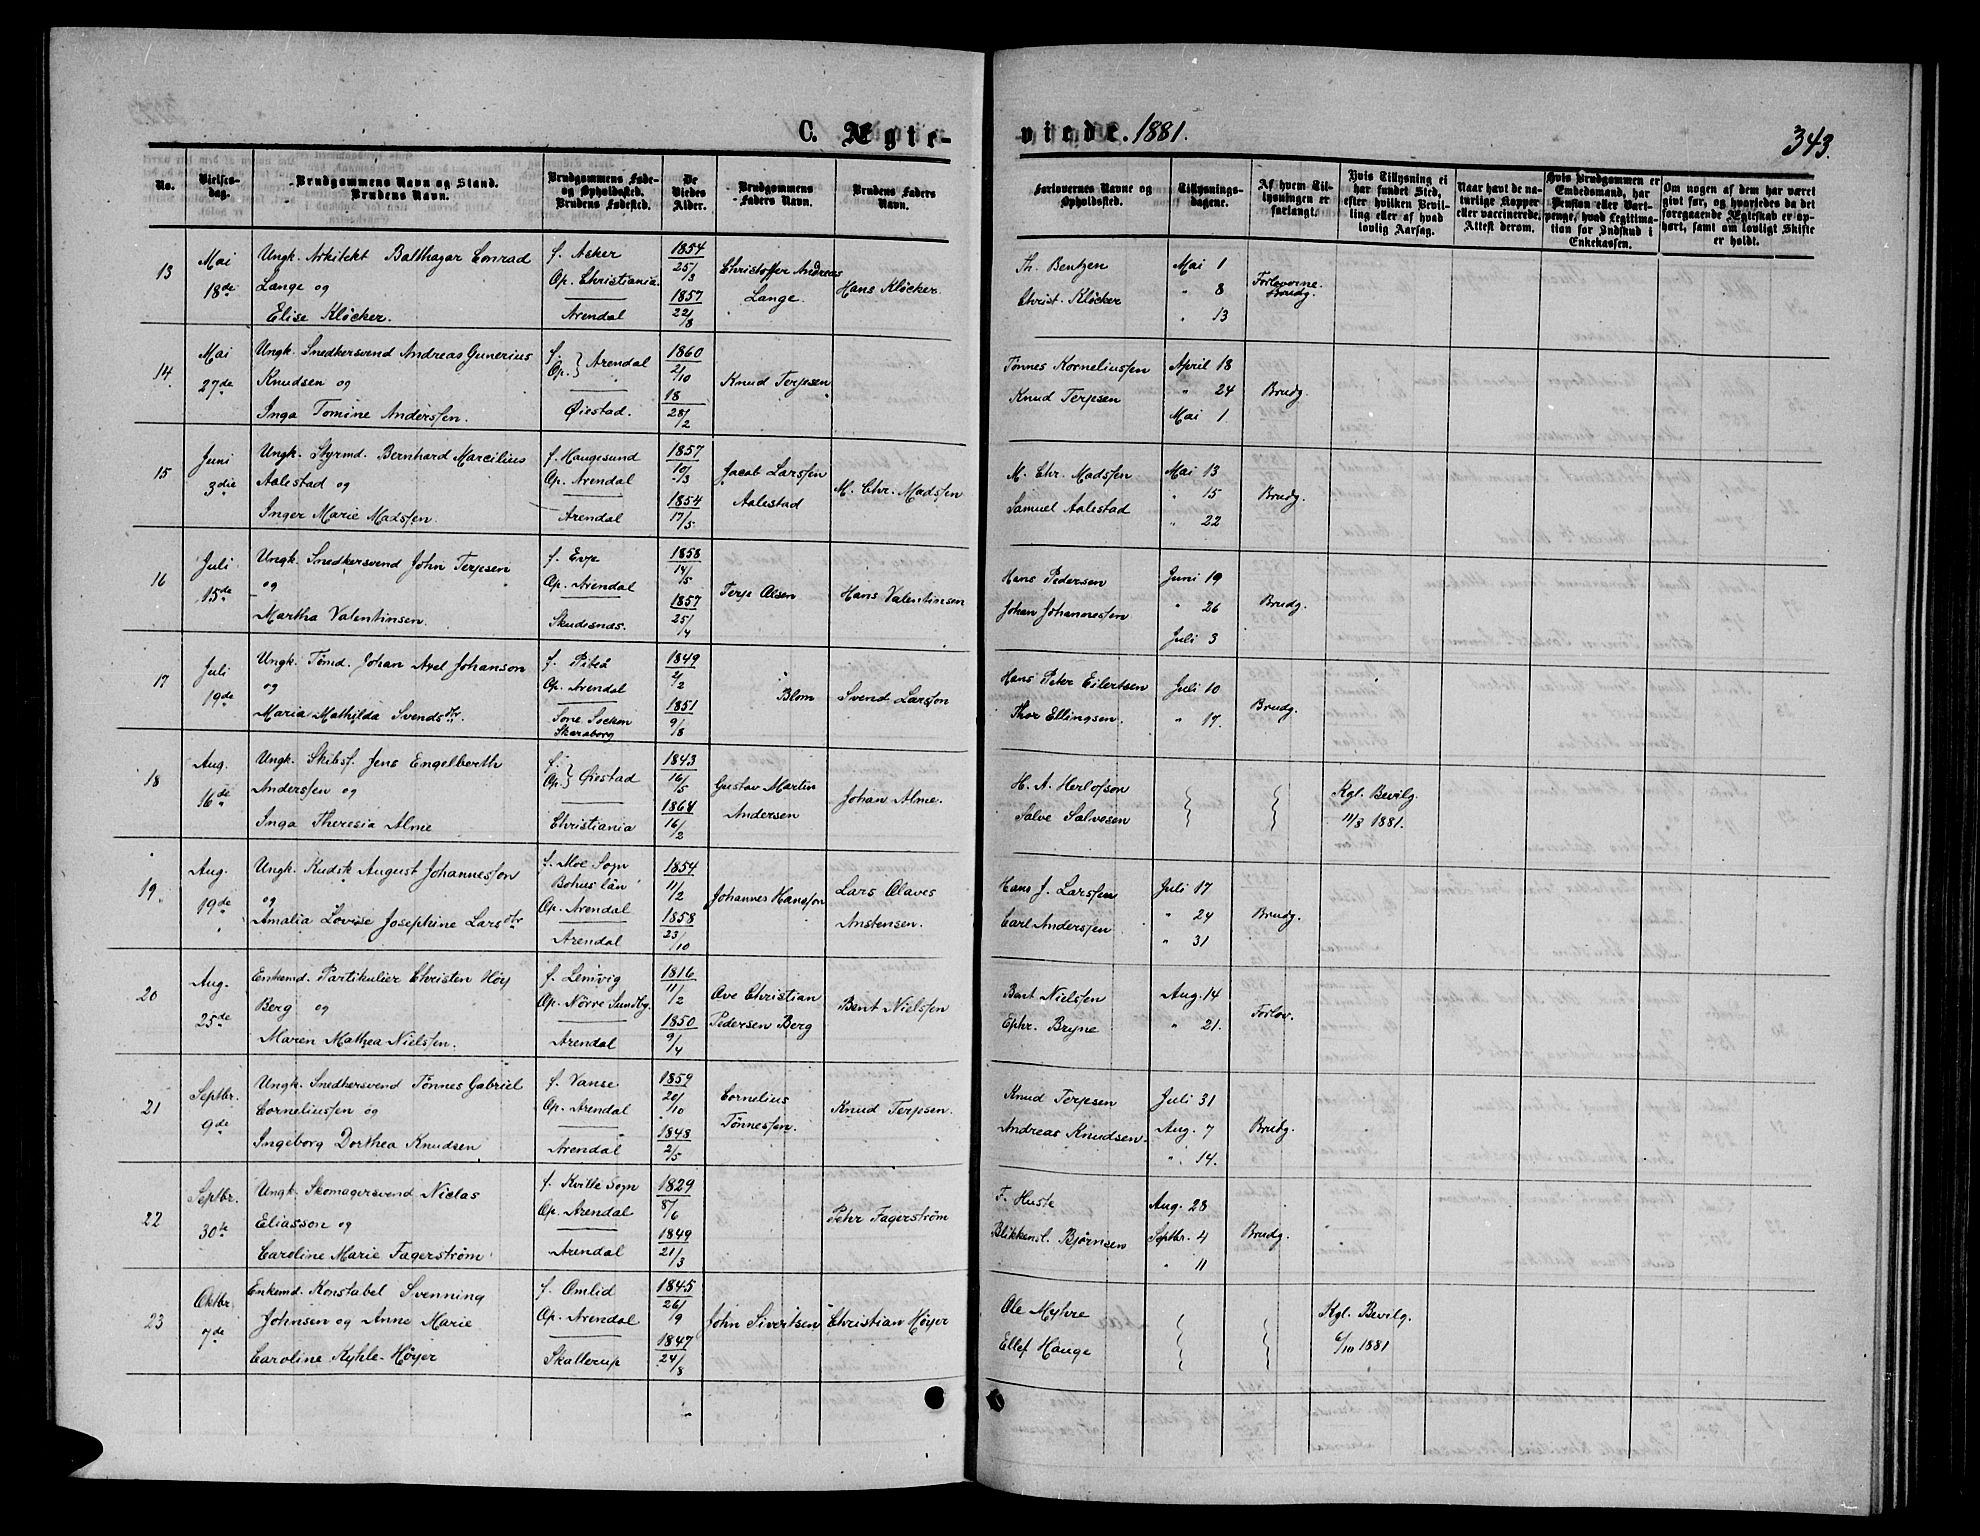 C. Ægte-
viede. 1881.
343.
No.
Vielses-
dag.
Brudgommens Navn og Stand.
Brudens Navn.
Brudgommens Føde-
og Opholdssted.
Brudens Fødested.
De
Viedes
Alder.
Brudgommens
Faders Navn.
Brudens Faders
Navn.
Forlovernes Navne og
Opholdssted.
Tillysnings-
dagene.
Af hvem Til-
lysningen er
forlangt.
Hvis Tillysning ei
har fundet Sted,
efter hvilken Bevil-
ling eller af hvad
lovlig Aarsag.
Naar havt de na-
turlige Kopper
eller vaccinerede.
Attest derom.
Hvis Brudgommen er
Embedsmand, har
Pension eller Vart-
penge, hvad Legitima-
tion for Indskud i
Enkekassen.
Om nogen af dem har været
givt før, og hvorledes da det
foregaaende Ægteskab er op-
hørt, samt om lovligt Skifte
er holdt.
13
Mai
18de
Ungk. Arkitekt Balthazar Conrad
Lange og
Elise Klöcker.
f. Asker
Op. Christiania.
Arendal
1854
25/3
1857
22/8
Christoffer Andreas
Lange.
Hans Klöcker.
Th. Bentzen
Christ. Klöcker
Mai 1
" 8
" 13
Forloverne
Brudg.
14.
Mai
27de
Ungk. Snedkersvend Andreas Gunerius
Knudsen og
Inga Tomine Anderssen.
f.
Op. } Arendal
Øiestad.
1860
2/10
18
28/2
Knud Terjesen
Tönnes Korneliussen
Knud Terjesen
April 18
" 24
Mai 1
Brudg.
15
Juni
3die
Ungk. Styrmd. Bernhard Marcilius
Aalestad og
Inger Marie Madssen.
f. Haugesund
Op. Arendal
Arendal
1857
10/3
1854
17/5
Jacob Larssen
Aalestad
M. Chr. Madssen
M. Chr. Madssen
Samuel Aalestad
Mai 13
" 15
" 22
Brudg.
16
Juli
15de
Ungk. Snedkersvend John Terjesen
og
Martha Valentinsen.
f. Evje
Op. Arendal
Skudesnæs.
1858
14/5
1857
25/4
Terje Olsen
Hans Valentinsen
Hans Pedersen
Johan Johannessen
Juni 19
" 26
Juli 3
Brudg.
17
Juli
19de
Ungk. Tömd. Johan Axel Johanson
og
Maria Mathilda Svendsdtr.
Op. Arendal
Skaraborg
1849
2/2
1851
9/8
Blom
Svend Larsson
Hans Peter Eilertsen
Thor Ellingsen.
Juli 10
" 17.
Brudg.
18
Aug.
16de
Ungk. Skibsf. Jens Engelberth
Anderssen og
Inga Theresia Alme
f.
Op. } Øiestad
Christiania
1843
16/5
1864
16/2
Gustav Martin
Andersen
Johan Alme.
H. A. Herlofson
Salve Salvesen
Kgl. Bevilg.
11/8 1881.
19.
Aug.
19de
Ungk. Kudsk August Johannesson
og
Amalia Lovise Josephine Larsdtr
f. Moe Sogn
Bohus län
Op. Arendal
Arendal
1854
11/2
1858
23/10
Johannes Hansson
Lars Olaves
Anstensen.
Hans J. Larssen
Carl Anderssen
Juli 17
" 24
" 31
Brudg.
20
Aug.
25de
Enkemd. Partikulier Christen Höy
Berg og
Maren Mathea Nielssen.
f. Lemvig
Op. Nörre Sundby.
Arendal
1816
11/2
1850
9/4
Ove Christian
Pedersen Berg
Bent Nielssen
Bent Nielssen
Ephr. Bryne
Aug. 14
" 21.
Forlov.
21
Septbr.
9de
Ungk. Snedkersvend Tönnes Gabriel
Corneliussen og
Ingeborg Dorthea Knudsen
f. Vanse
Op. Arendal
Arendal
1859
20/10
1848
2/5
Cornelius
Tönnessen.
Knud Terjesen.
Knud Terjesen
Andreas Knudsen.
Juli 31
Aug. 7
" 14.
Brudg.
22
Septbr.
30te
Ungk. Skomagersvend Niclas
Eliasson og
Caroline Marie Fagerström
f. Kville Sogn
Op. Arendal
Arendal
1829
8/6
1849
21/3
Petter Fagerström
F. Huste
Blikkensl. Bjørnsen
Aug. 28
Septbr. 4
" 11
Brudg.
23
Oktbr.
7de
Enkemd. Konstabel Svenning
Johnsen og Anne Marie
Caroline Kyhle-Höyer
f. Omlid
Op. Arendal
Skallerup
1845
26/9
1847
24/8
John Sivertsen
Christian Höyer
Ole Myhre
Ellef Hauge
Kgl. Bevilg.
6/10 1881